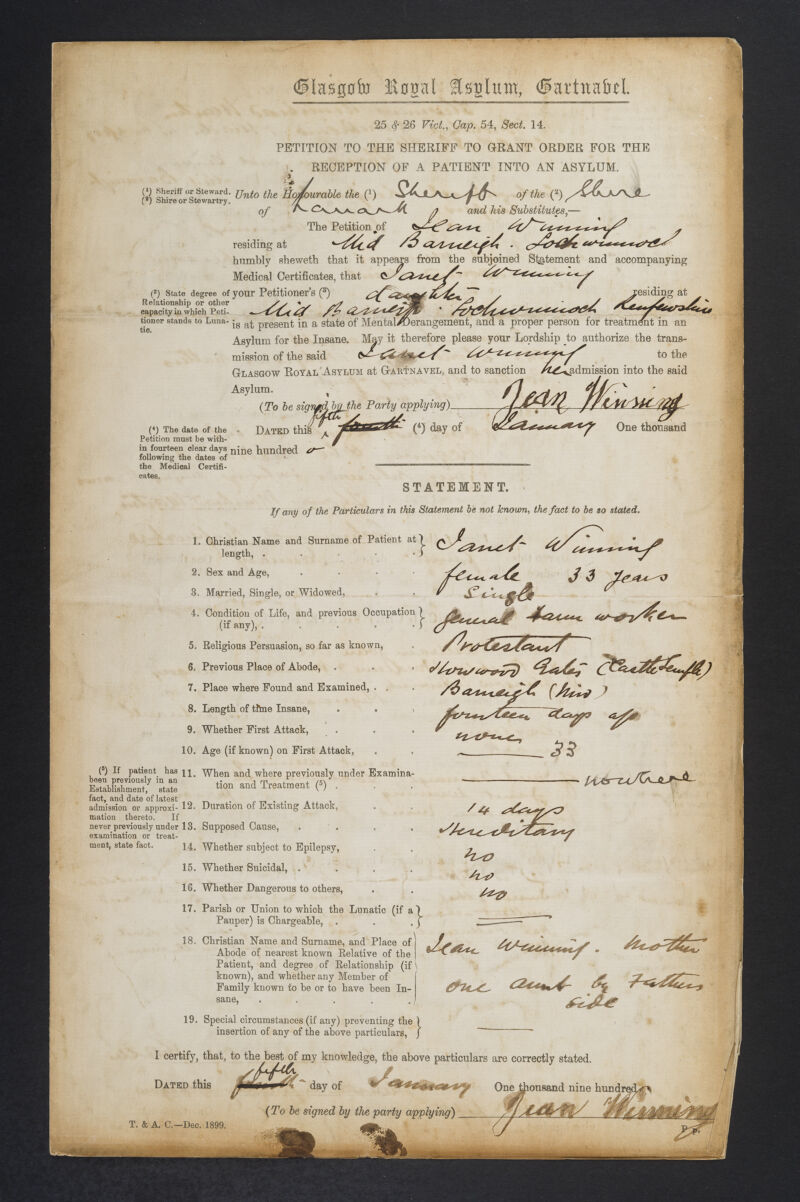 Glasgow Royal Asylum, Gartnavel.
25 & 26 Vict., Cap. 54, Sect. 14.
PETITION TO THE SHERIFF TO GRANT ORDER FOR THE
RECEPTION OF A PATIENT INTO AN ASYLUM.
(1) Sheriff or Steward.
(2) Shire or Stewartry.
Unto the Honourable the (1) Sheriff of the (2) Shire
of Lanark and his Substitutes,—
The Petition of Jean Winning
residing at Mid Barneigh. Lochwinnoch
humbly sheweth that it appears from the subjoined Statement and accompanying
Medical Certificates, that Janet Winning
(3) State degree of
Relationship or other
capacity in which Peti-
tioner stands to Luna-
tic.
your Petitioner's (3) daughter residing at
Mid Barneigh. Lochwinnoch Renfrewshire
is at present in a state of Mental Derangement, and a proper person for treatment in an
Asylum for the Insane. May it therefore please your Lordship to authorize the trans-
mission of the said Janet Winning to the
GLASGOW ROYAL ASYLUM at GARTNAVEL, and to sanction her admission into the said
Asylum.
(To be signed by the Party applying) Jean Winning
(4) The date of the
Petition must be with-
in fourteen clear days
following the dates of
the Medical Certifi-
cates.
DATED this fifth fourth (4) day of January One thousand
nine hundred
STATEMENT.
If any of the Particulars in this Statement be not known, the fact to be so stated.
1. Christian Name and Surname of Patient at
length, . Janet Winning
2. Sex and Age, female 33 years
3. Married, Single, or Widowed, Single
4. Condition of Life, and previous Occupation
(if any), . general farm worker
5. Religious Persuasion, so far as known, Protestant
6. Previous Place of Abode, Howwood Gates (Castle Semple)
7. Place where Found and Examined, Barneigh (Mid)
8. Length of time Insane, fourteen days ago
9. Whether First Attack, none
10. Age (if known) on First Attack, 33
(5) If patient has
been previously in an
Establishment, state
fact, and date of latest
admission or approxi-
mation thereto. If
never previously under
examination or treat-
ment, state fact.
11. When and where previously under Examina-
tion and Treatment (5) . nowhere
12. Duration of Existing Attack, 14 days
13. Supposed Cause, Hereditary
14. Whether subject to Epilepsy, no
15. Whether Suicidal, no
16. Whether Dangerous to others, no
17. Parish or Union to which the Lunatic (if a
Pauper) is Chargeable,
18. Christian Name and Surname, and Place of
Abode of nearest known Relative of the
Patient, and degree of Relationship (if
known), and whether any Member of
Family known to be or to have been In-
sane,
Jean Winning. Mother
one aunt by Fathers
side
19. Special circumstances (if any) preventing the
insertion of any of the above particulars,
I certify, that, to the best of my knowledge, the above particulars are correctly stated.
DATED this fourth fifth day of January One thousand nine hundred
(To be signed by the party applying) Jean Winning
T. & A. C.—Dec. 1899.
P p.